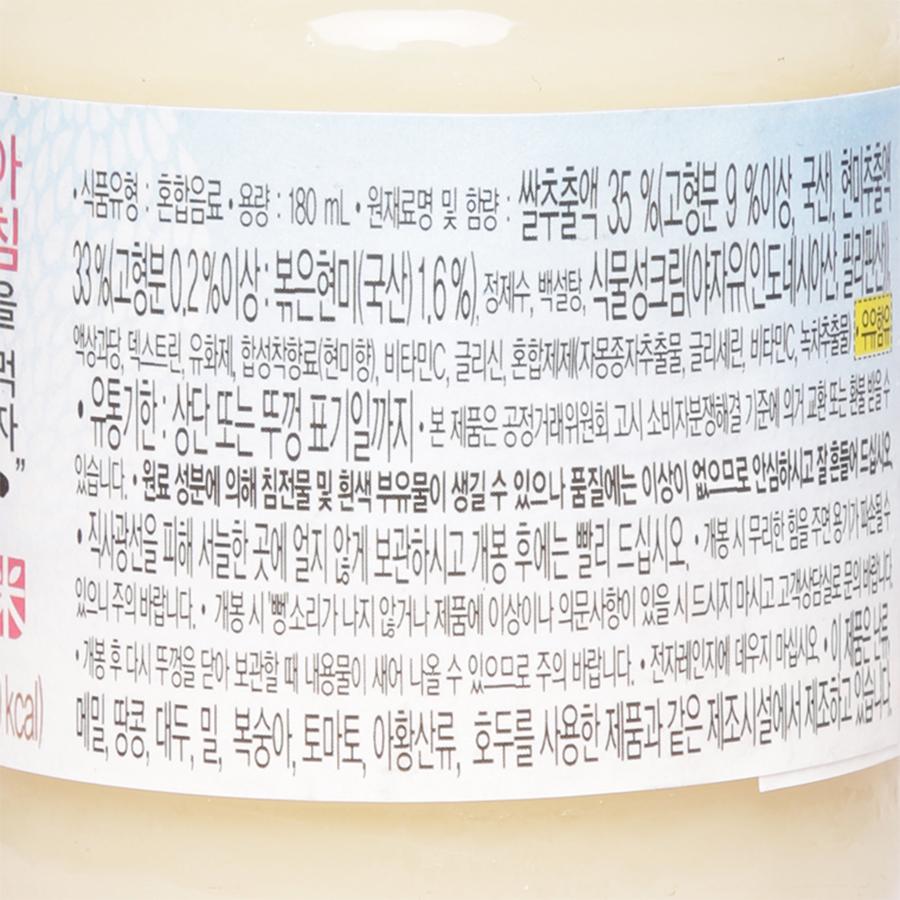 아
침
을
먹
자
”
米
kcal)
•식품유형 : 혼합음료 • 용량 : 180 mL • 원재료명 및 함량 : 쌀추출액 35 %(고형분 9 %이상, 국산), 현미추출액
33 %(고형분 0.2 %이상 : 볶은현미(국산) 1.6 %), 정제수, 백설탕, 식물성크림(야자유(인도네시아산, 필리핀산),
액상과당, 덱스트린, 유화제, 합성착향료(현미향), 비타민C, 글리신, 혼합제제(자몽종자추출물, 글리세린, 비타민C, 녹차추출물) • 우유함유
• 유통기한 : 상단 또는 뚜껑 표기일까지 • 본 제품은 공정거래위원회 고시 소비자분쟁해결 기준에 의거 교환 또는 환불 받을 수
있습니다. • 원료 성분에 의해 침전물 및 흰색 부유물이 생길 수 있으나 품질에는 이상이 없으므로 안심하시고 잘 흔들어 드십시오.
• 직사광선을 피해 서늘한 곳에 얼지 않게 보관하시고 개봉 후에는 빨리 드십시오. • 개봉 시 무리한 힘을 주면 용기가 파손될 수
있으니 주의 바랍니다. • 개봉 시 '뻥'소리가 나지 않거나 제품에 이상이나 의문사항이 있을 시 드시지 마시고 고객상담실로 문의 바랍니다.
• 개봉 후 다시 뚜껑을 닫아 보관할 때 내용물이 새어 나올 수 있으므로 주의 바랍니다. • 전자레인지에 데우지 마십시오. • 이 제품은 난류,
메밀, 땅콩, 대두, 밀, 복숭아, 토마토, 아황산류, 호두를 사용한 제품과 같은 제조시설에서 제조하고 있습니다.